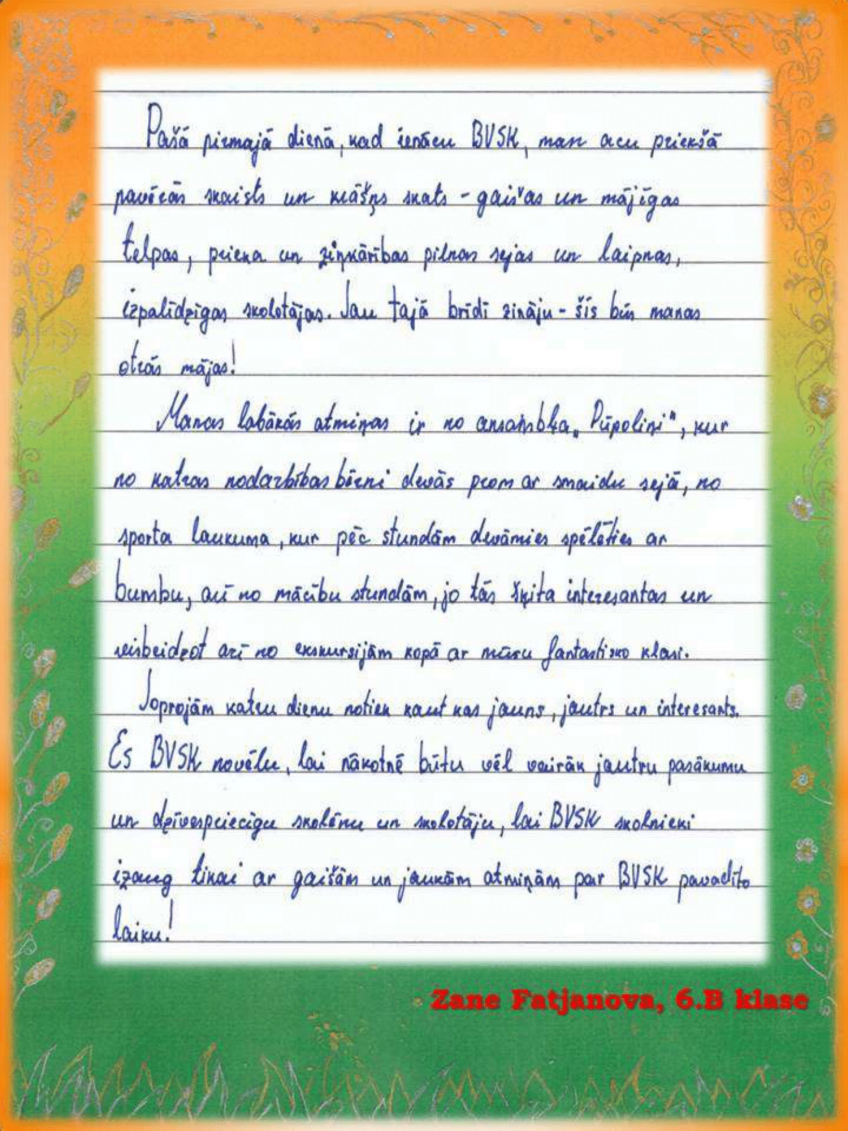 Pašā pirmajā dienā, kad ienācu BVSK, man acu priekšā
pavērās skaists un krāšņs skats - gaišas un mājīgas
telpas, prieka un ziņkārības pilnas sejas un laipnas,
izpalīdzīgas skolotājas. Jau tajā brīdī zināju - šīs būs manas
otrās mājas!
Manas labākās atmiņas ir no ansambļa „Pūpoliņi", kur
no katras nodarbības bērni devās prom ar smaidu sejā, no
sporta laukuma, kur pēc stundām devāmies spēlēties ar
bumbu, arī no mācību stundām, jo tās šķita interesantas un
visbeidzot arī no ekskursijām kopā ar mūsu fantastisko klasi.
Joprojām katru dienu notiek kaut kas jauns, jautrs un interesants.
Es BVSK novēlu, lai nākotnē būtu vēl vairāk jautru pasākumu
un dzīvespriecīgu skolēnu un skolotāju, lai BVSK skolnieki
izaug tikai ar gaišām un jaukām atmiņām par BVSK pavadīto
laiku!
Zane Fatjanova, 6.B klase